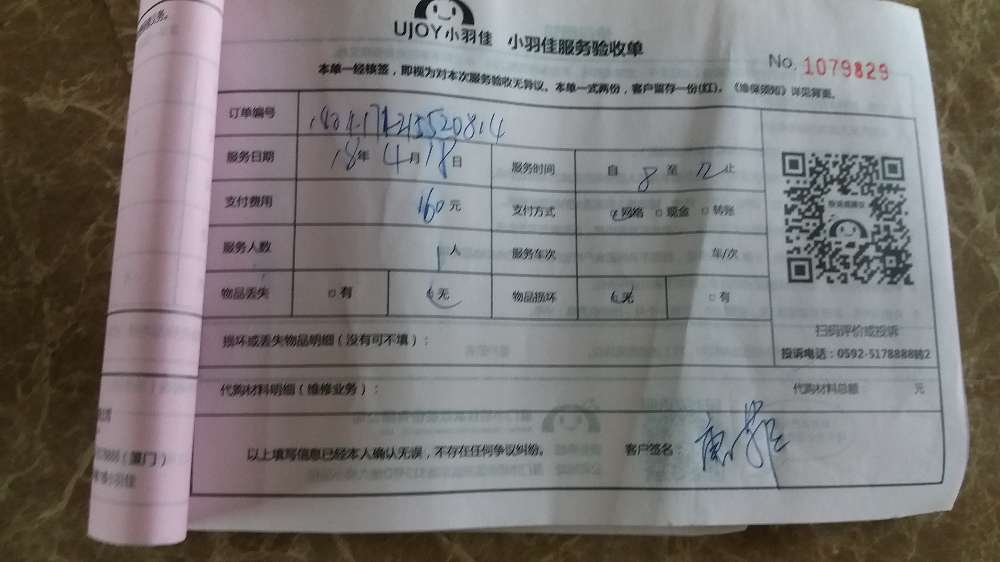 UJOY小羽佳 小羽佳服务验收单
No. 1079829
本单一经核签，即视为对本次服务验收无异议。本单一式两份，客户留存一份(红)。《维保须知》详见背面。
订单编号
服务日期 18年 4月 18日 服务时间 自 8 至 12 止
支付费用 160元 支付方式 网络 □ 现金 □ 转账
服务人数 1 人 服务车次 车/次
物品丢失 □ 有 无 物品损坏 无 □ 有
投诉或建议
扫码评价或投诉
投诉电话：0592-5178888转2
损坏或丢失物品明细（没有可不填）：
代购材料明细（维修业务）： 代购材料总额 元
以上填写信息已经本人确认无误，不存在任何争议纠纷。 客户签名：
（厦门）
小羽佳